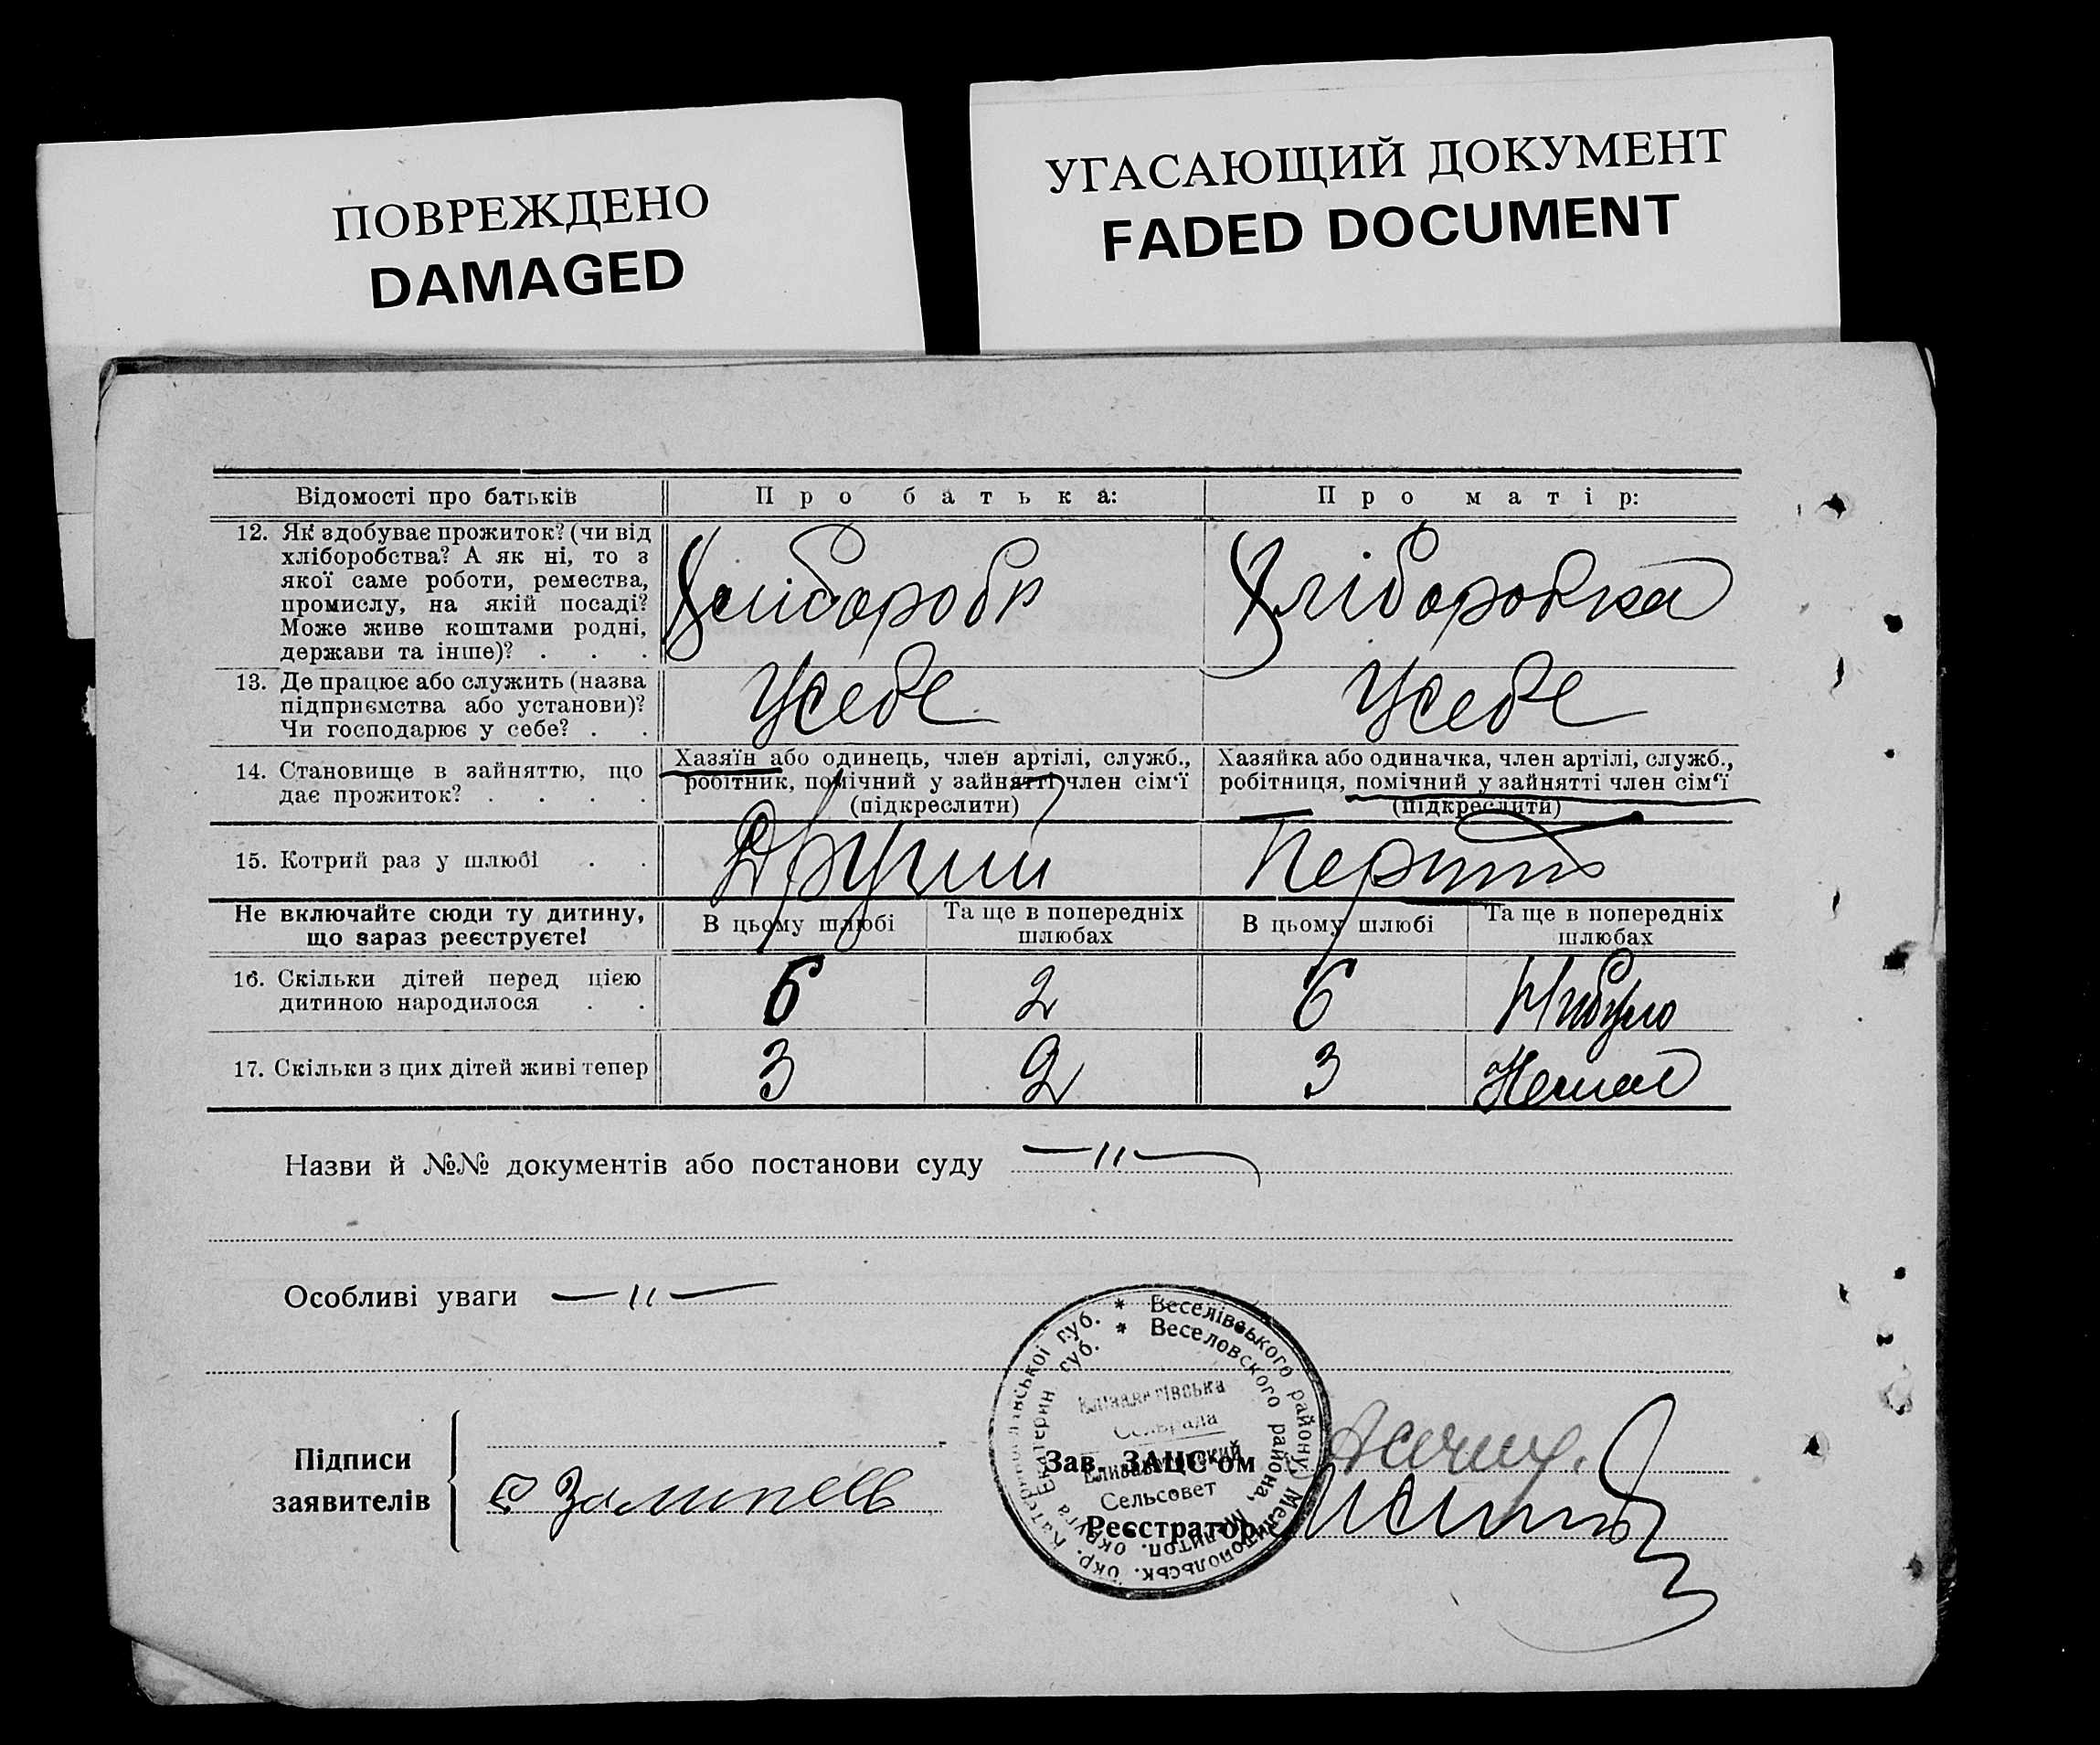 ПОВРЕЖДЕНО
DAMAGED
УГАСАЮЩИЙ ДОКУМЕНТ
FADED DOCUMENT
Відомості про батьків
Про батька:
Про матір:
12. Як здобуває прожиток? (чи від
хліборобства? А як ні, то з
якої саме роботи, ремества,
промислу, на якій посаді?
Може живе коштами родні,
держави та інше)? . . .
Хлібороб
Хліборобка
13. Де працює або служить (назва
підприємства або установи)?
Чи господарює у себе? . .
У себе
У себе
14. Становище в зайняттю, що
дає прожиток? . . . .
Хазяїн або одинець, член артілі, служб.,
робітник, помічний у зайнятті член сім‘ї
(підкреслити)
Хазяйка або одиначка, член артілі, служб.,
робітниця, помічний у зайнятті член сім‘ї
(підкреслити)
15. Котрий раз у шлюбі . .
Другий
Перший
Не включайте сюди ту дитину,
що зараз реєструєте!
В цьому шлюбі
Та ще в попередніх
шлюбах
В цьому шлюбі
Та ще в попередніх
шлюбах
16. Скільки дітей перед цією
дитиною народилося . .
6
2
6
Небуло
17. Скільки з цих дітей живі тепер
3
2
3
Немає
Назви й №№ документів або постанови суду —〃—
Особливі уваги —〃—
Підписи
заявителів
Зав. ЗАЦС‘ом
Реєстратор
* Веселівського району, Мелітопольськ. окр. Катеринославської губ.
* Веселовского района, Мелитоп. округа Екатерин губ.
Єлизаветівська
Сельрада
Елизаветовский
Сельсовет